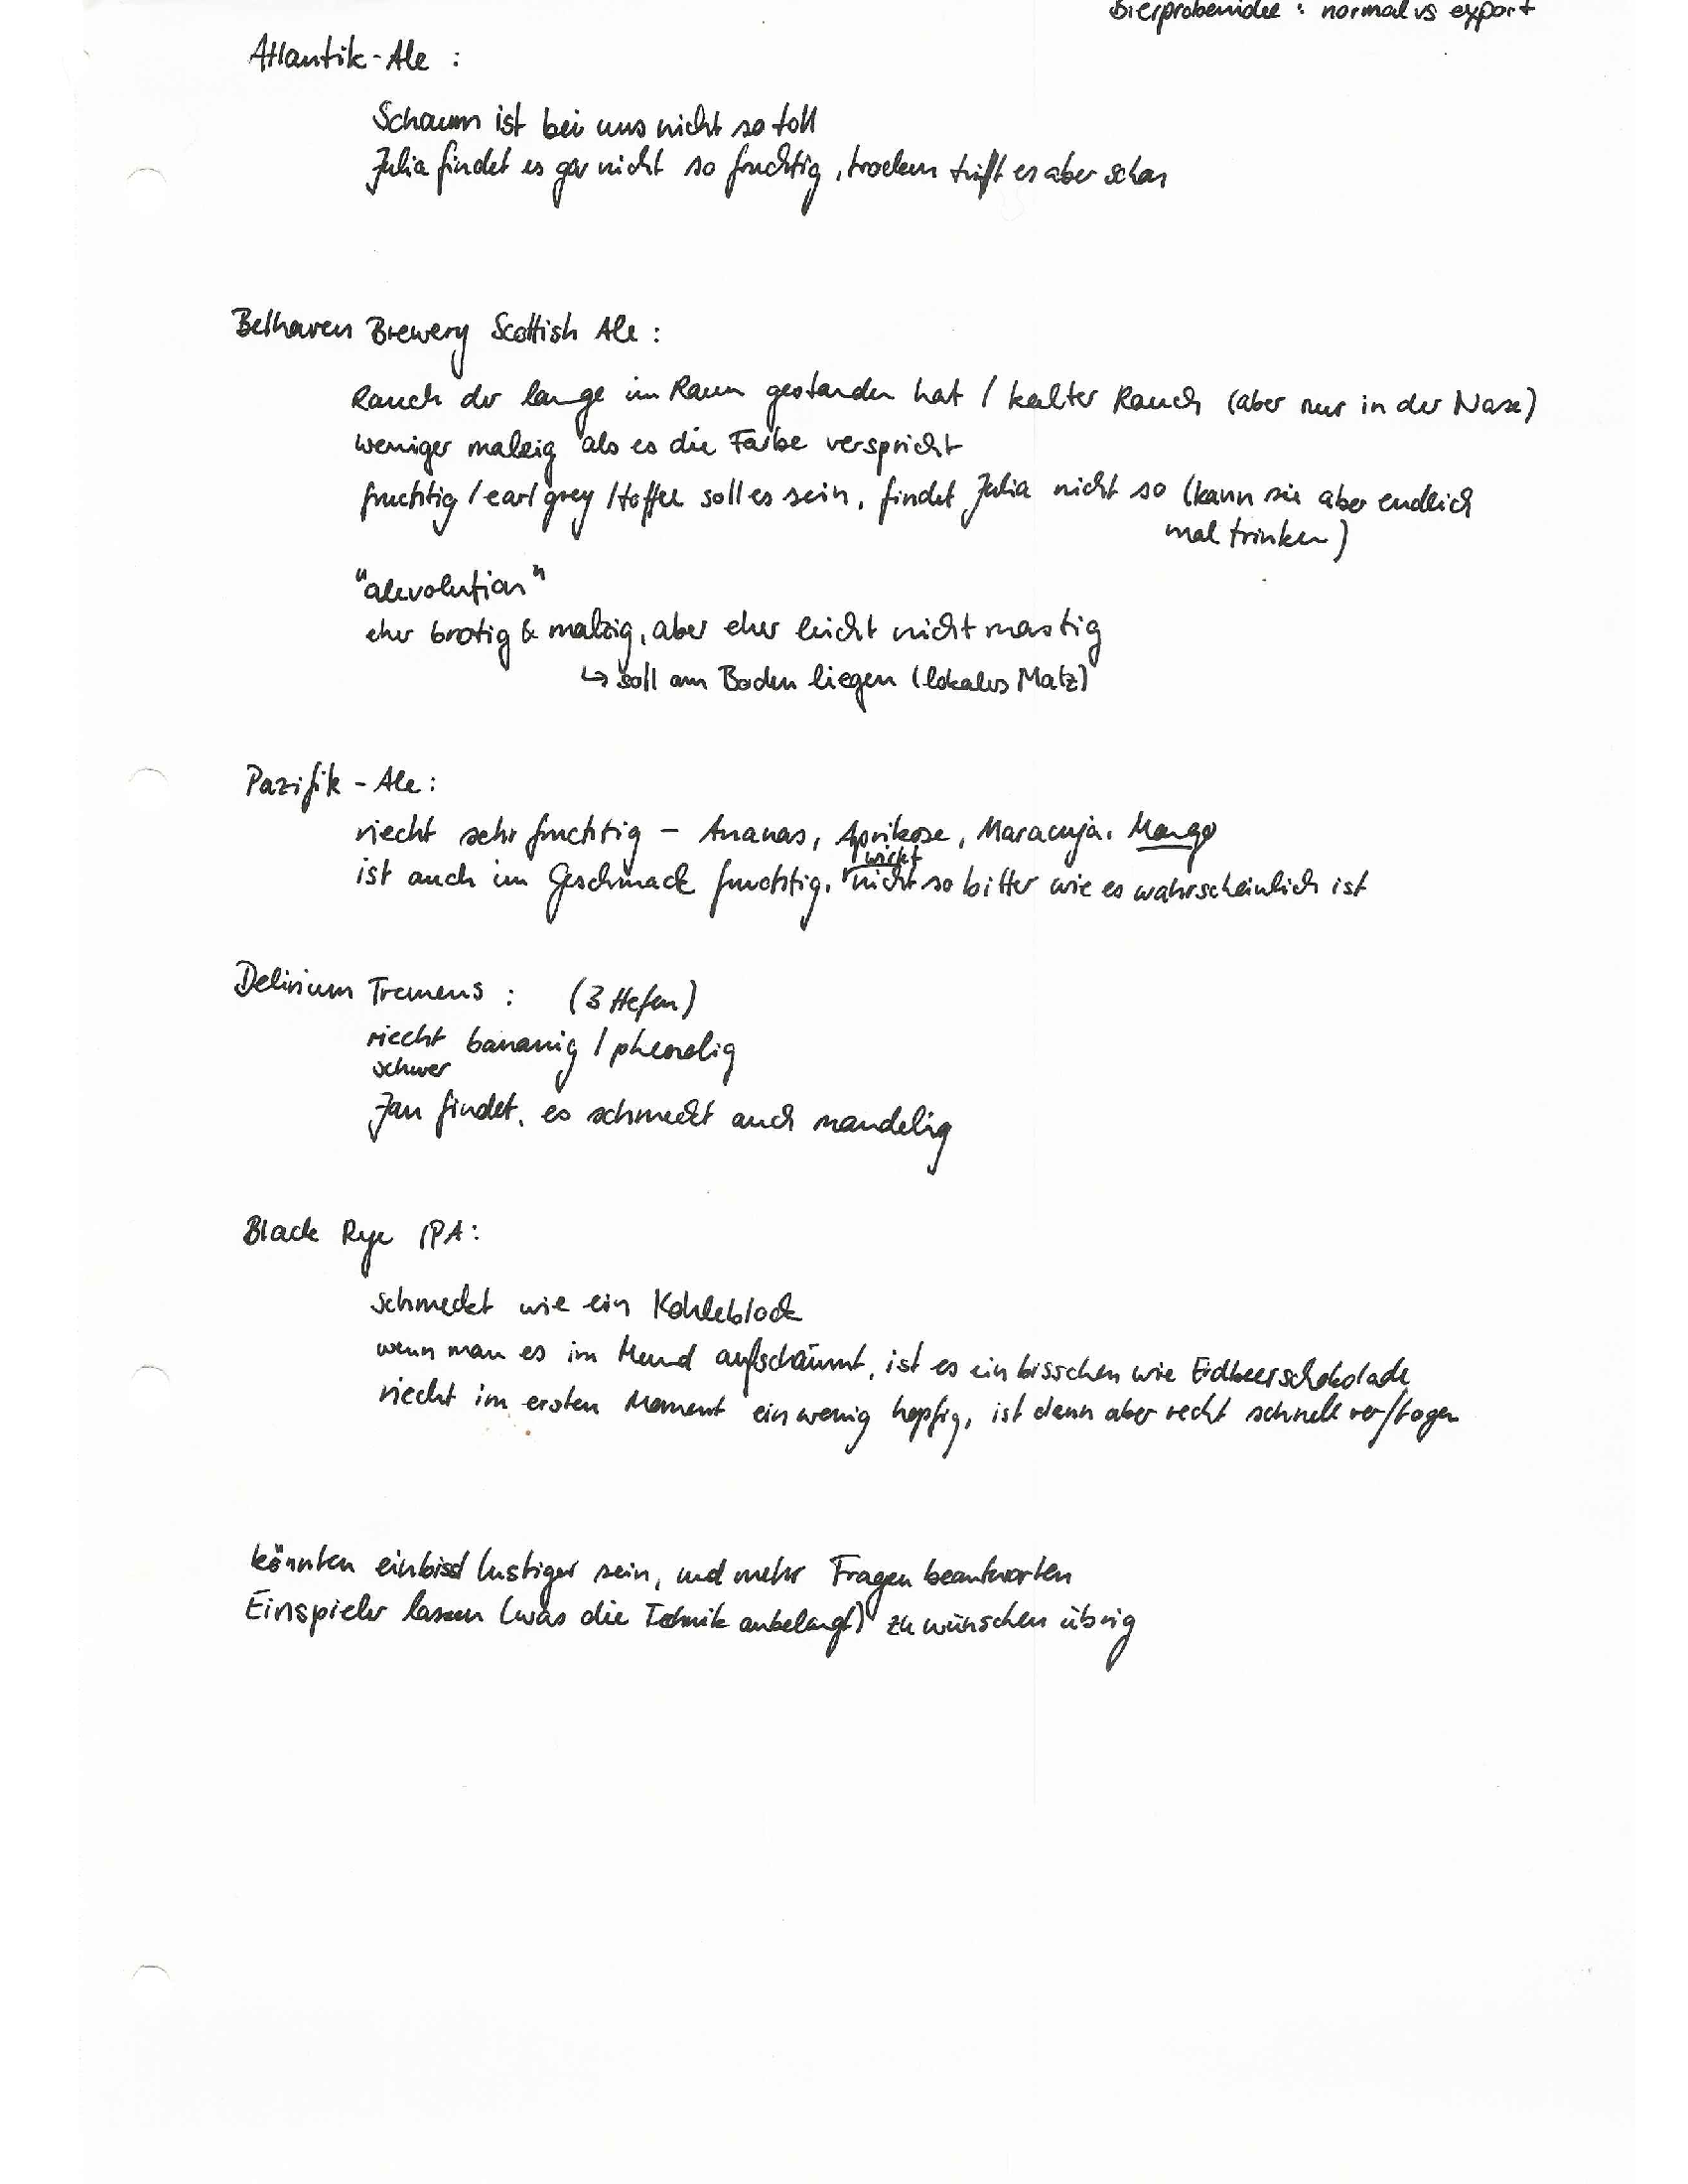 Bierprobenidee : normal vs export
Atlantik-Ale :
Schaum ist bei uns nicht so toll
Julia findet es gar nicht so fruchtig, trocken trifft es aber schon
Belhaven Brewery Scottish Ale :
Rauch der lange im Raum gestanden hat / kalter Rauch (aber nur in der Nase)
weniger malzig als es die Farbe verspricht
fruchtig / earl grey / toffee soll es sein, findet Julia nicht so (kann sie aber endlich
mal trinken)
"alevolution"
eher brotig & malzig, aber eher leicht nicht mastig
↳ soll am Boden liegen (lokales Malz)
Pazifik - Ale :
riecht sehr fruchtig - Ananas, Aprikose, Maracuja, Mango
wirkt
ist auch im Geschmack fruchtig, nicht so bitter wie es wahrscheinlich ist
Delirium Tremens : (3 Hefen)
riecht bananig / phenolig
schwer
Jan findet, es schmeckt auch mandelig
Black Rye IPA :
schmeckt wie ein Kohleblock
wenn man es im Mund aufschäumt, ist es ein bisschen wie Erdbeerschokolade
riecht im ersten Moment ein wenig hopfig, ist dann aber recht schnell verflogen
könnten einbissl lustiger sein, und mehr Fragen beantworten
Einspieler lassen (was die Technik anbelangt) zu wünschen übrig